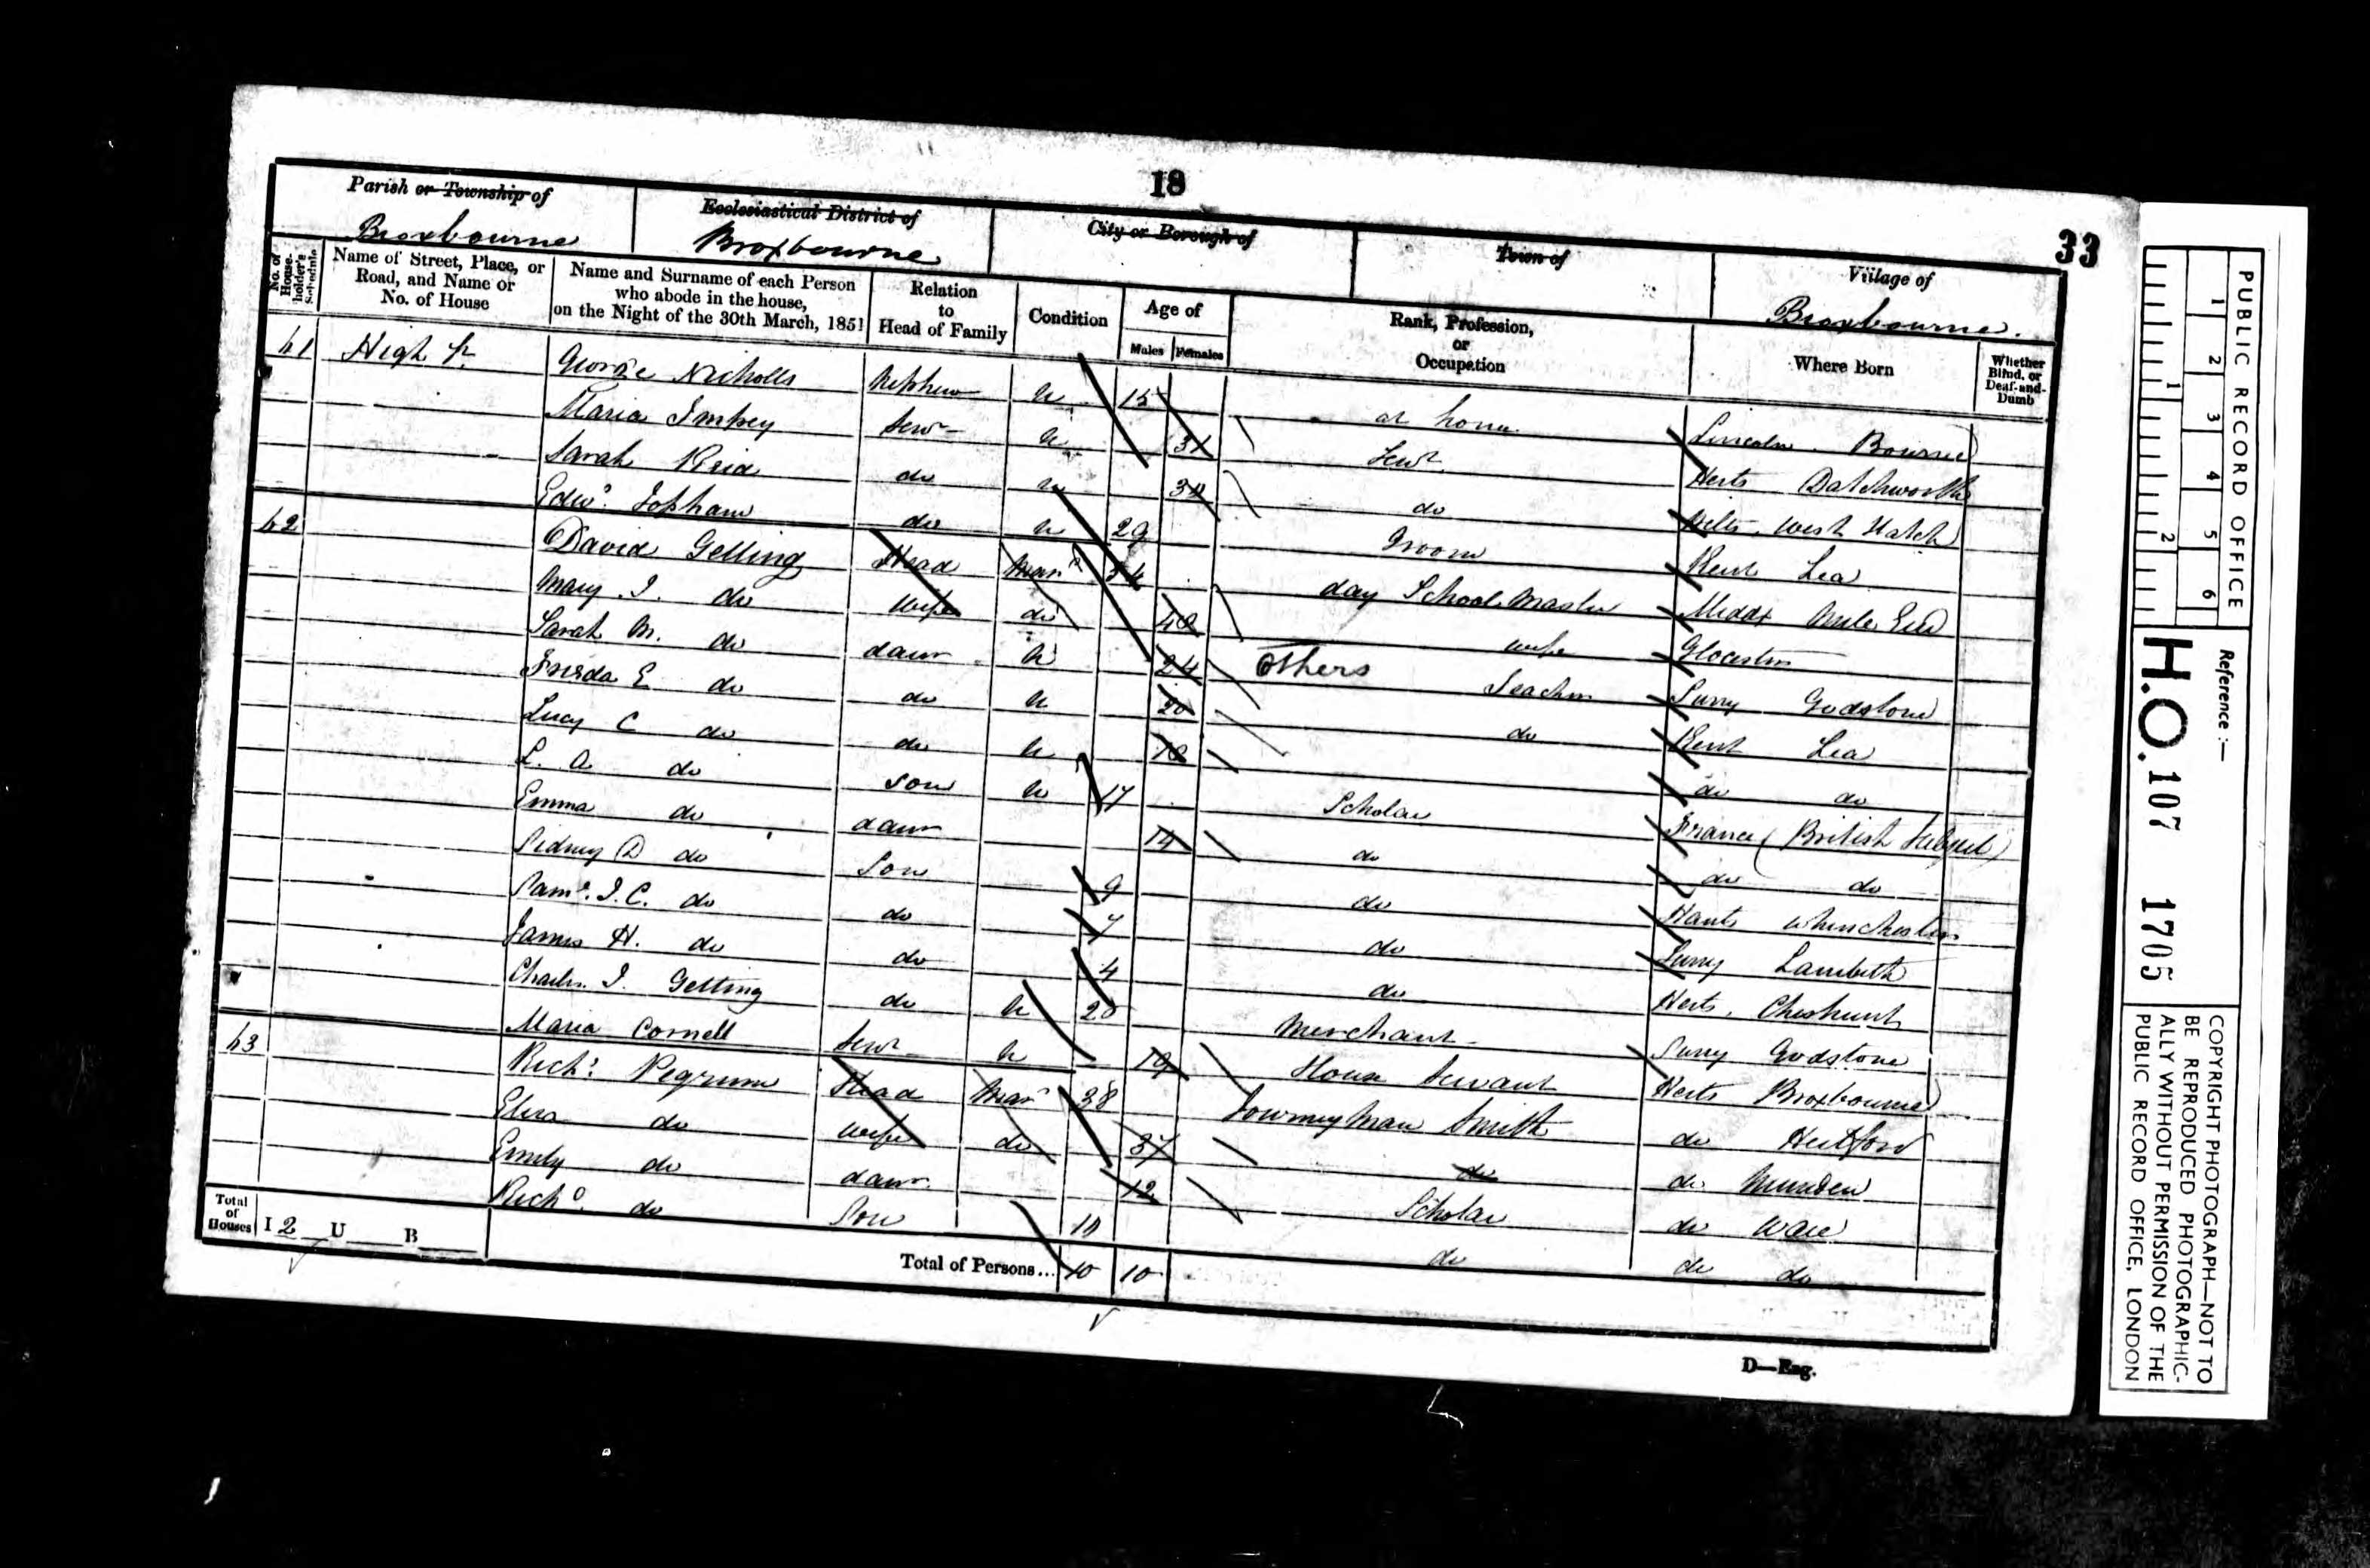 18
33
Parish or Township of
Broxbourne
Ecclesiastical District of
Broxbourne
City or Borough of
Town of
Village of
Broxbourne.
No. of House-holder's Schedule
Name of Street, Place, or Road, and Name or No. of House
Name and Surname of each Person who abode in the house, on the Night of the 30th March, 1851
Relation to Head of Family
Condition
Age of
Males Females
Rank, Profession, or Occupation
Where Born
Whether Blind, or Deaf-and-Dumb
61 High George Nicholls Nephew U 15 at home Lincoln Bourne
Maria Impey Serv U 31 Servt Herts Datchworth
Sarah Reid do U do Wilts West Hatch
Edwd. Topham do U 29 Groom Kent Lea
62 David Gelling Head Mard 54 day School Master Middx Mile End
Mary I. do wife do wife Glocester
Sarah M. do daur U 24 Others Teacher Surry Godstone
E do do U 20 do Kent Lea
Lucy C do do U 18 do do
L. A do Son U 17 Scholar France (British Subject)
Emma do daur 14 do do do
Sidney D do Son 9 do Hants Whinchester
Saml. I. C. do do 7 do Surry Lambeth
James H. do do 4 do Herts. Cheshunt
Charles I. Gelling do U 20 Merchant Surry Godstone
Maria Cornell Serv U 19 House Servant Herts Broxbourne
63 Richd. Pegrum Head Mard 38 Journeyman Smith do Hertford
Eliza do wife do 37 do do Munden
Emily do daur. 12 Scholar do Ware
Richd. do Son do do do
Total of Houses I 2 U B
Total of Persons... 10 10
D—Eng.
PUBLIC RECORD OFFICE
1 2 3 4 5 6
1 2
Reference:—
H.O. 107 1705
COPYRIGHT PHOTOGRAPH—NOT TO
BE REPRODUCED PHOTOGRAPHIC-
ALLY WITHOUT PERMISSION OF THE
PUBLIC RECORD OFFICE, LONDON